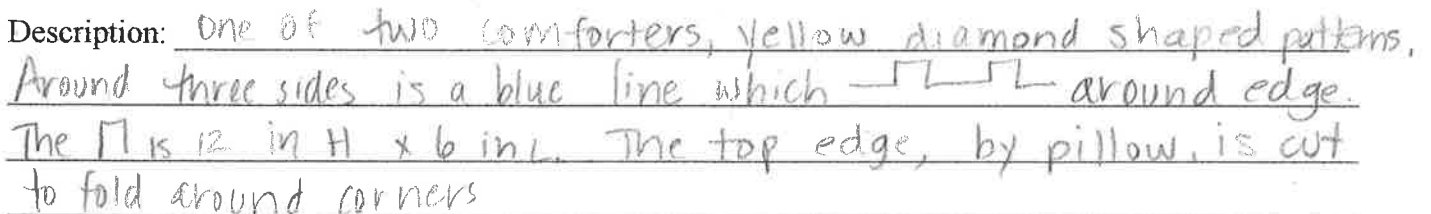 Description: One of two comforters, yellow diamond shaped patterns,
Around three sides is a blue line which around edge.
The is 12 in H x 6 in L. The top edge, by pillow, is cut
to fold around corners